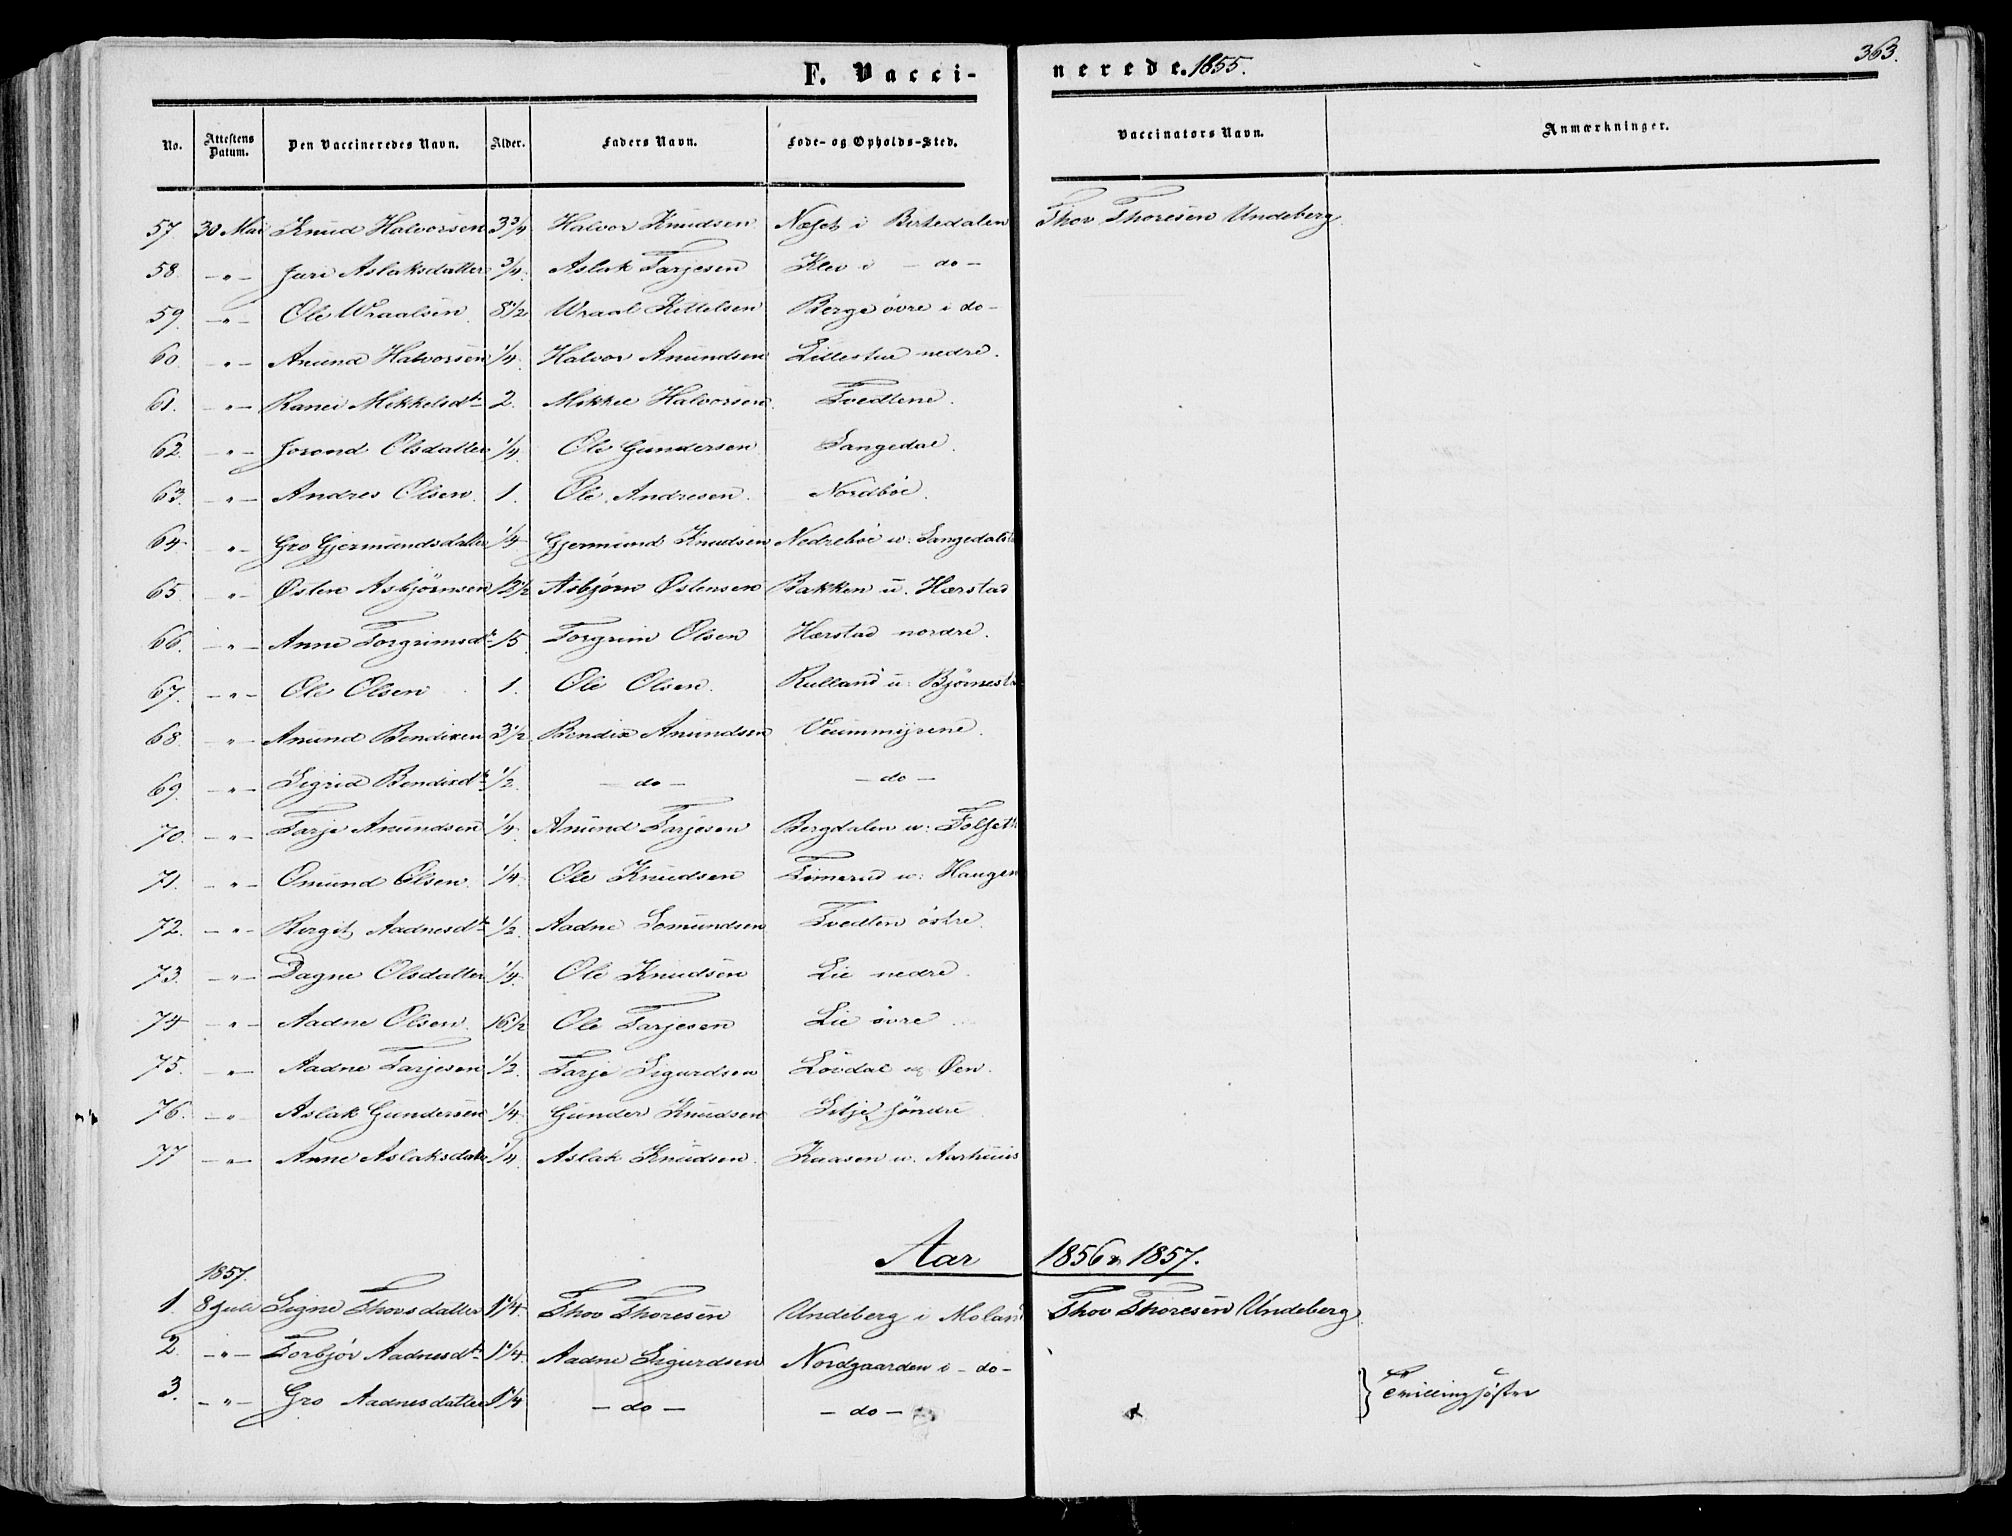 363.
F. Vaccinerede. 1855.
No. Attestens Datum. Den Vaccineredes Navn. Alder. Faders Navn. Føde- og Opholds-Sted. Vaccinators Navn. Anmærkninger.
57 30 Mai Knud Halvorsen 3 3/4 Halvor Knudsen Næset i Birtedalen Thov Thoresen Undeberg
58. -"- Juri Aslaksdatter 3/4. Aslak Tarjesen Klev i - do -
59. -"- Ole Wraalsen 8 1/2 Wraal Kittelsen Berge øvre i do -
60. -"- Anund Halvorsen 1/4. Halvor Anundsen Lillestue nedre.
61. -"- Ranei Mikkelsdtr 2. Mikkel Halvorsen Tvedtene.
62. -"- Jorond Olsdatter 1/4. Ole Gundersen Langedal.
63. -"- Andres Olsen. 1. Ole Andresen. Nordbøe.
64 -"- Gro Gjermundsdatter 1/4 Gjermund Knudsen Nedrebøe u: Langedal
65. -"- Østen Asbjørnsen 12 1/2 Asbjørn Østensen Bakken u. Hærstad
66. -"- Anne Torgrimsdtr 15. Torgrim Olsen Hærstad nordre.
67. -"- Ole Olsen 1. Ole Olsen. Rulland u: Bjørnestad
68. -"- Anund Bendixen 3 1/2 Bendix Anundsen Veummyrene.
69. -"- Sigrid Bendixdtr 1/2. - do - - do -
70. -"- Tarje Anundsen 1/4. Anund Tarjesen Bergdalen u: Folset
71. -"- Omund Olsen. 1/4. Ole Knudsen Timerud u: Haugen
72. -"- Birgit Aadnesdtr 1/2. Aadne Lomundsen Tvedten østre.
73. -"- Dagne Olsdatter 1/4. Ole Knudsen Lie nedre.
74 -"- Aadne Olsen. 16 1/2 Ole Tarjesen Lie øvre.
75. -"- Aadne Tarjesen 1/2. Tarje Sigurdsen Løvdal og Øen.
76. -"- Aslak Gundersen 1/4. Gunder Knudsen Litje søndre
77 -"- Anne Aslaksdatter 1/4. Aslak Knudsen. Kaasen u. Aarhuus
Aar 1856 & 1857.
1857.
1. 8 Juli Signe Thovsdatter 1 1/4. Thov Thoresen Undeberg i Moland Thov Thoresen Undeberg
2. -"- Torbjør Aadnesdtr 1 1/4. Aadne Sigurdsen Nordgaarden i - do -
3. -"- Gro Aadnesdatter 1 1/4 - do - - do - } Tvillingsøstre